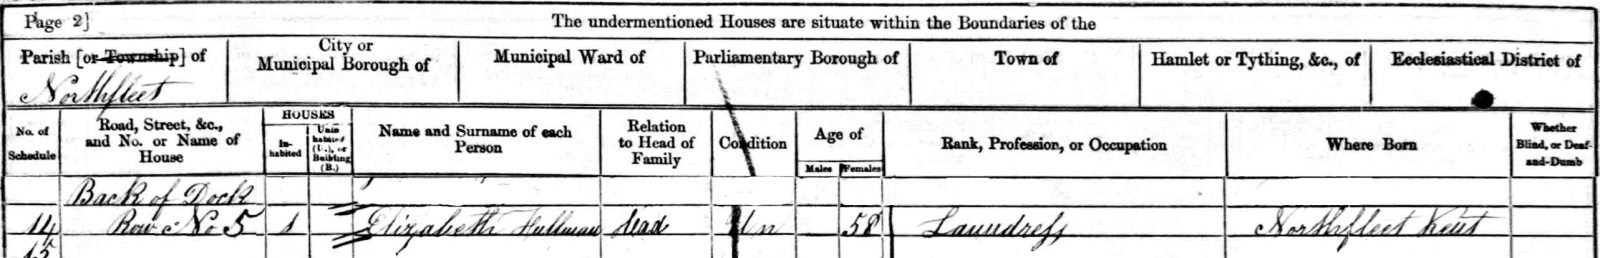 Page 2] The undermentioned Houses are situate within the Boundaries of the
Parish [or Township] of City or Municipal Borough of Municipal Ward of Parliamentary Borough of Town of Hamlet or Tything, &c., of Ecclesiastical District of
Northfleet
No. of Schedule Road, Street, &c., and No. or Name of House HOUSES In-habited Unin-habited (U.), or Building (B.) Name and Surname of each Person Relation to Head of Family Condition Age of Males Females Rank, Profession, or Occupation Where Born Whether Blind, or Deaf-and-Dumb
Back of Dock
14 Row No 5 1 Elizabeth Hullman head Un 58 Laundress Northfleet Kent
15